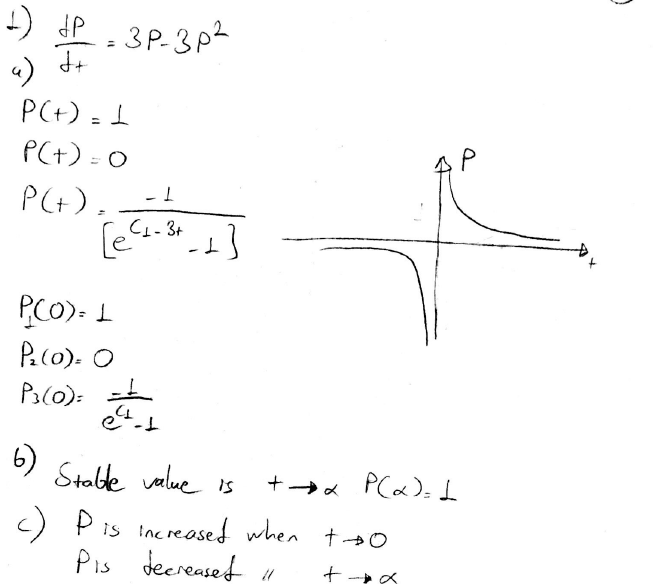 1) dP/dt = 3P-3P²
a)
P(t) = 1
P(t) = 0
P(t) = -1/[e^(C1-3t) -1]
P
t
P1(0) = 1
P2(0) = 0
P3(0) = -1/(e^C1 -1)
b) Stable value is t→α P(α) = 1
c) P is increased when t→0
P is decreased " t→α